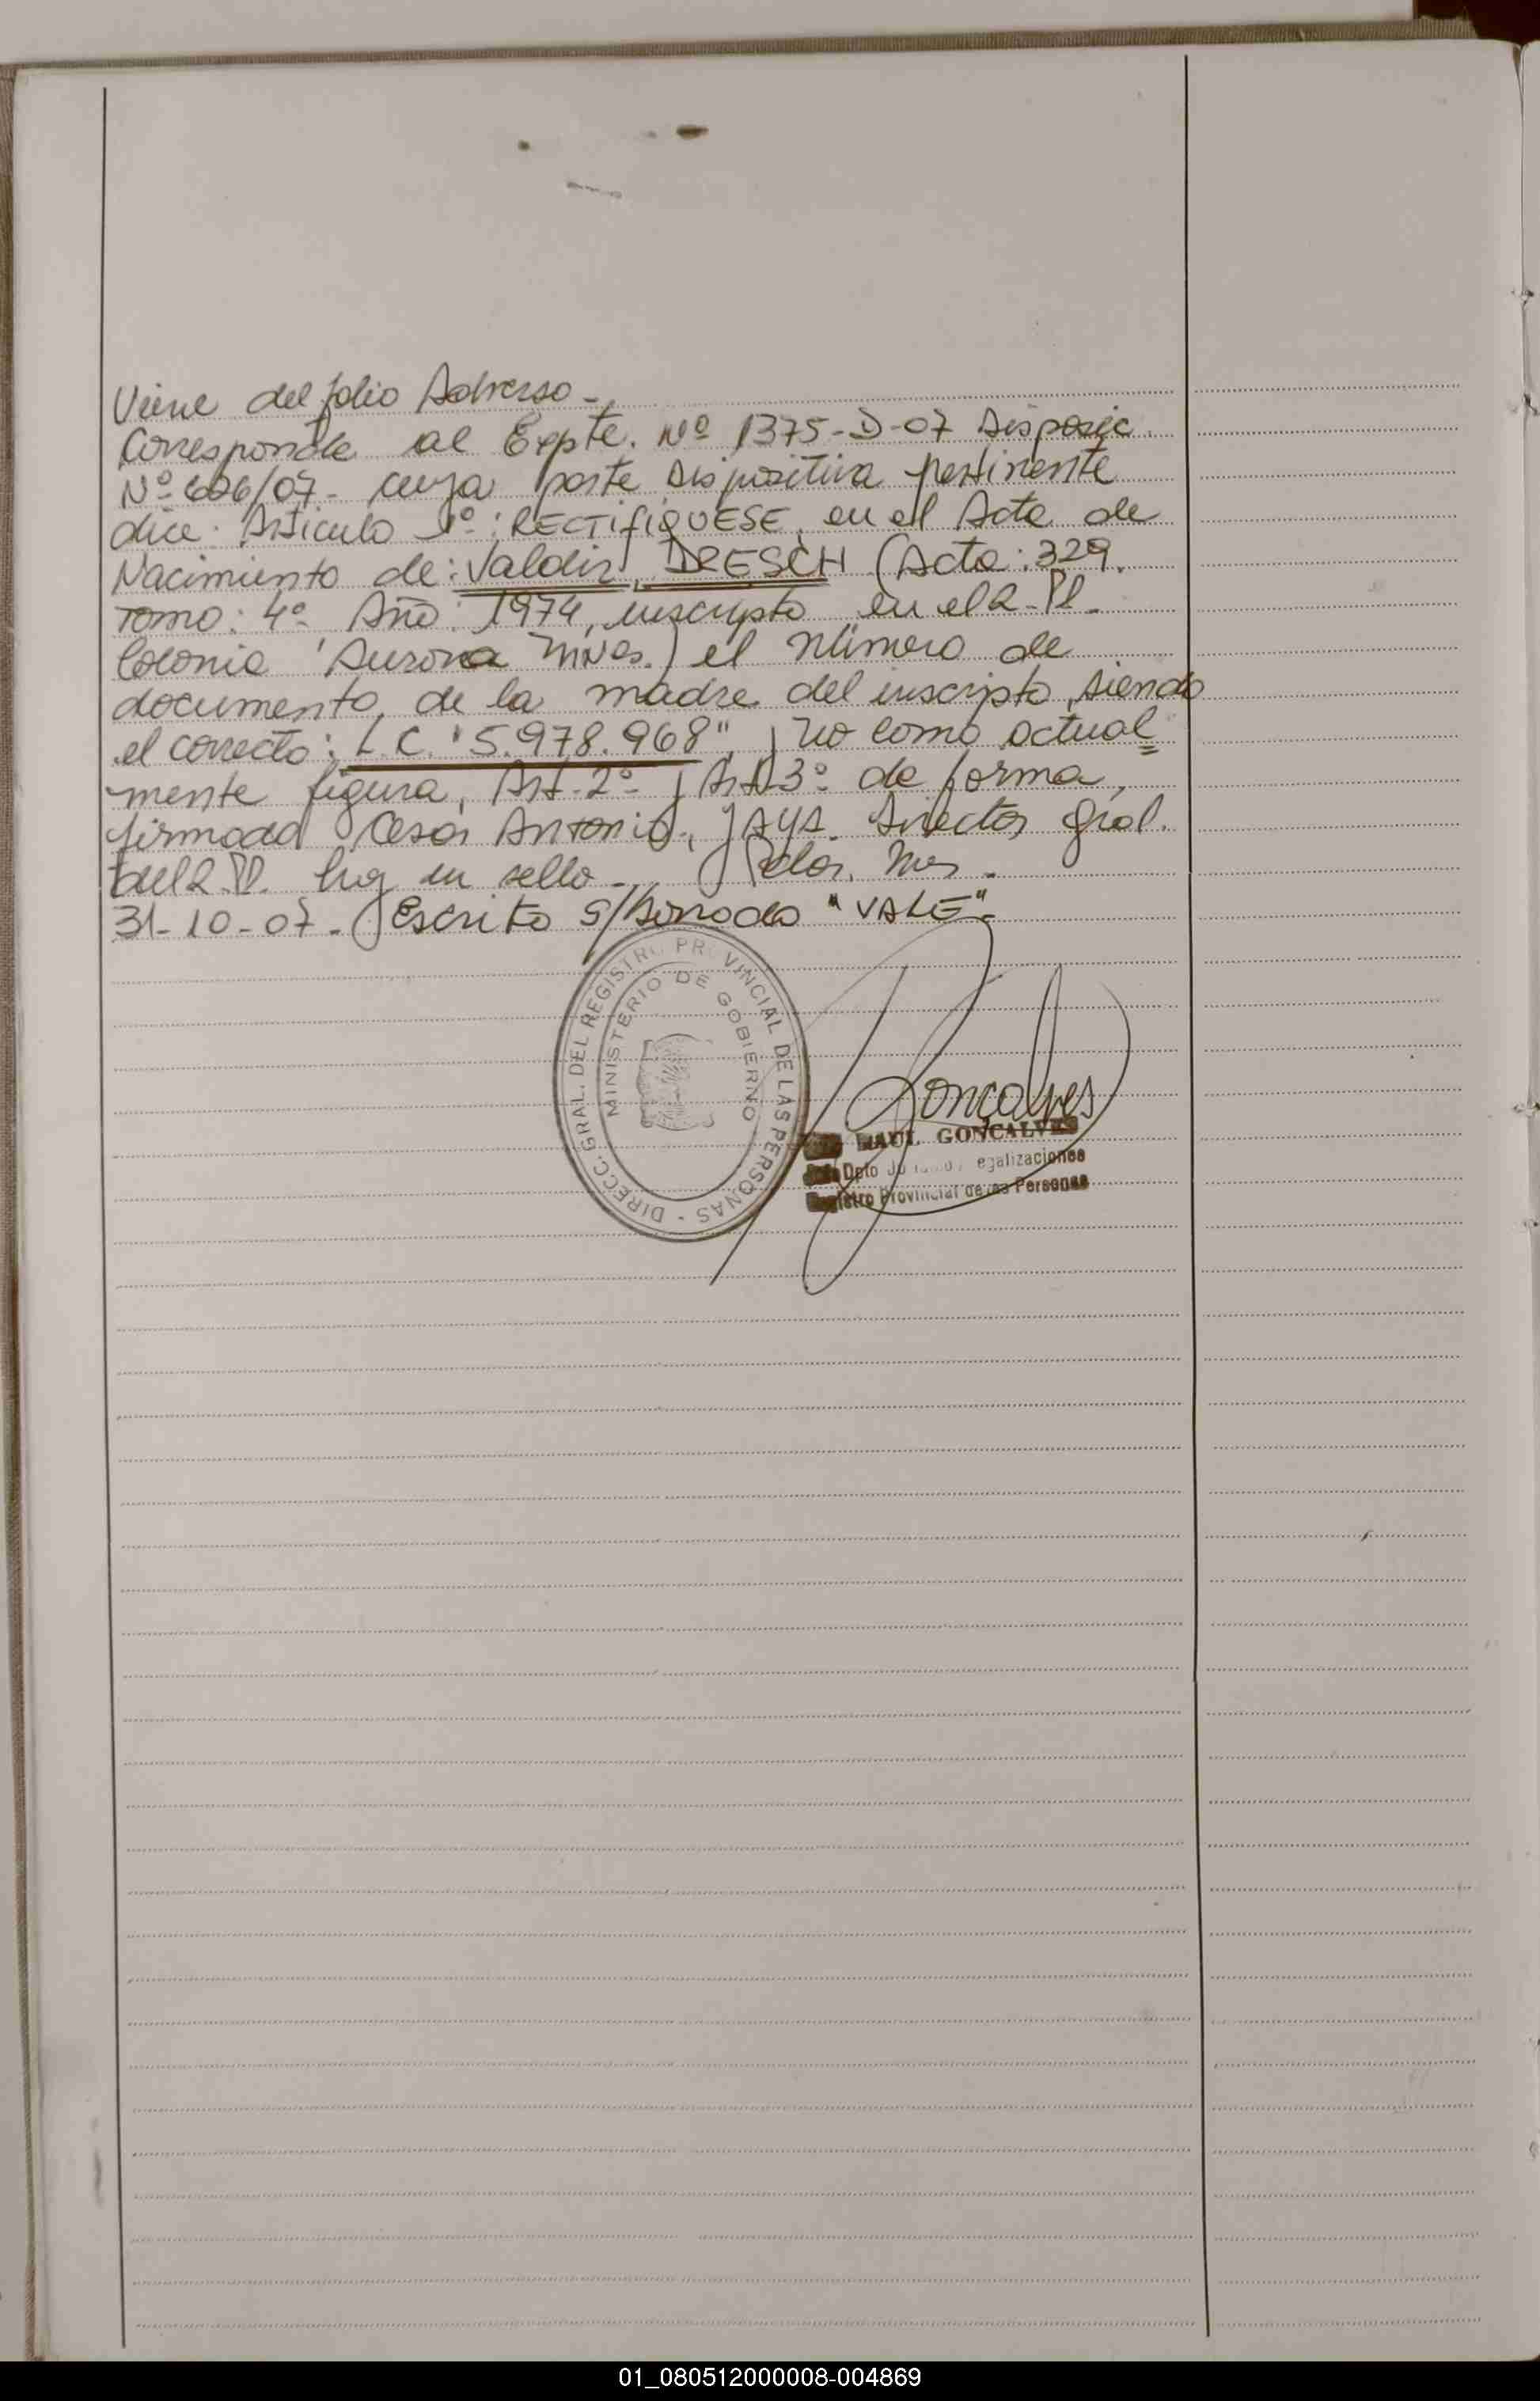 Viene del folio Adverso -
Corresponde al Expte. Nº 1375-D-07 Disposic.
Nº 606/07 - cuya parte dispositiva pertinente
dice: Articulo 1º: RECTIFIQUESE, en el Acta de
Nacimiento de: Valdir, DRESCH (Acta: 329.
Tomo: 4º Año: 1974, inscripto en el R. Pl.
Colonia Aurora Mnes.) el número de
documento, de la madre del inscripto, siendo
el correcto: L.C. "5.978.968", y no como actual
mente figura, Art. 2º y Art 3º de forma,
firmado Cesar Antonio, Director Gral.
del R. Pl. hay un sello - Pdas. Mnes.
31-10-07. Escrito s/borrado "VALE".
DIRECC. GRAL. DEL REGISTRO PROVINCIAL DE LAS PERSONAS
MINISTERIO DE GOBIERNO
Goncalves
RAUL GONCALVES
Dpto egalizaciones
Registro Provincial de las Personas
01_080512000008-004869